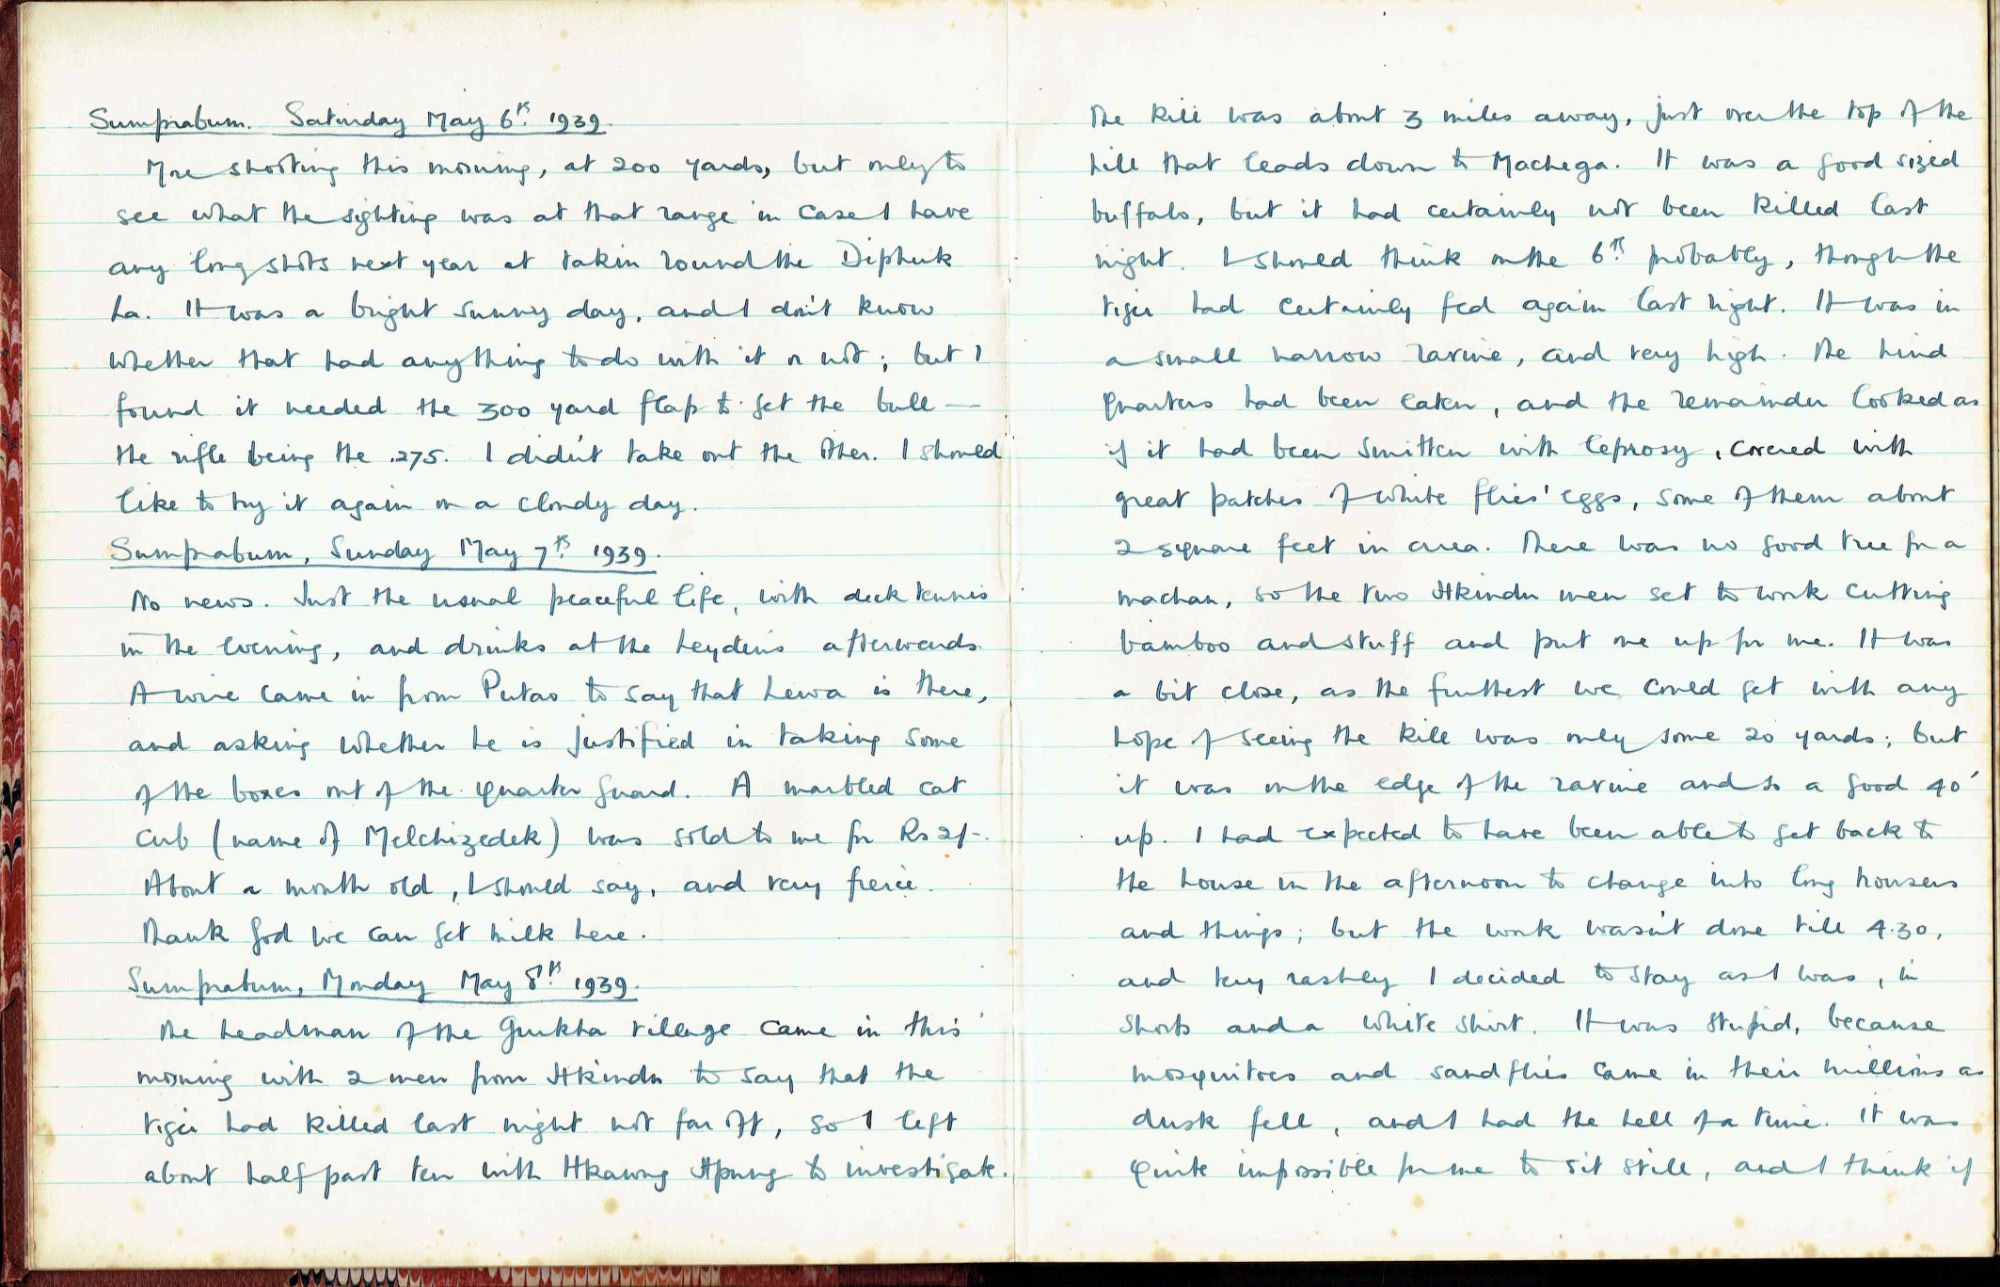 Sumprabum. Saturday May 6th. 1939.
More shooting this morning, at 200 yards, but only to
see what the sighting was at that range in case I have
any long shots next year at takin round the Diphuk
La. It was a bright sunny day, and I don't know
whether that had anything to do with it or not; but I
found it needed the 300 yard flap to get the bull —
the rifle being the .275. I didn't take out the other. I should
like to try it again on a cloudy day.
Sumprabum, Sunday May 7th 1939.
No news. Just the usual peaceful life, with deck tennis
in the evening, and drinks at the Leyden's afterwards.
A wire came in from Putao to say that Lewa is there,
and asking whether he is justified in taking some
of the boxes out of the quarter guard. A marbled cat
cub (name of Melchizedek) was sold to me for Rs 2/-.
About a month old, I should say, and very fierce.
Thank God we can get milk here.
Sumprabum, Monday May 8th. 1939.
The headman of the Gurkha village came in this
morning with 2 men from Hkindu to say that the
tiger had killed last night not far off, so I left
about half past ten with Hkawng Hpung to investigate.
The kill was about 3 miles away, just over the top of the
hill that leads down to Machega. It was a good sized
buffalo, but it had certainly not been killed last
night. I should think on the 6th. probably, though the
tiger had certainly fed again last night. It was in
a small narrow ravine, and very high. The hind
quarters had been eaten, and the remainder looked as
if it had been smitten with leprosy, covered with
great patches of white flies' eggs, some of them about
2 square feet in area. There was no good tree for a
machan, so the two Hkindu men set to work cutting
bamboo and stuff and put one up for me. It was
a bit close, as the furthest we could get with any
hope of seeing the kill was only some 20 yards; but
it was on the edge of the ravine and so a good 40'
up. I had expected to have been able to get back to
the house in the afternoon to change into long trousers
and things; but the work wasn't done till 4.30,
and very rashly I decided to stay as I was, in
shorts and a white shirt. It was stupid, because
mosquitoes and sandflies came in their millions as
dusk fell, and I had the hell of a time. It was
quite impossible for me to sit still, and I think if